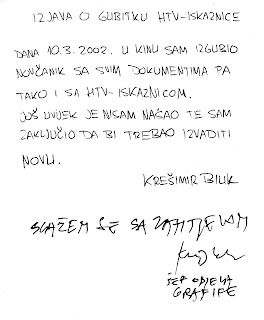 IZJAVA O GUBITKU HTV-ISKAZNICE
DANA 10.3.2002. U KINU SAM IZGUBIO
NOVČANIK SA SVIM DOKUMENTIMA PA
TAKO I SA HTV-ISKAZNICOM.
JOŠ UVIJEK JE NISAM NAŠAO TE SAM
ZAKLJUČIO DA BI TREBAO IZVADITI
NOVU.
KREŠIMIR BILIK
SLAŽEM SE SA ZAHTJEVOM
ŠEF ODJELA
GRAFIKE